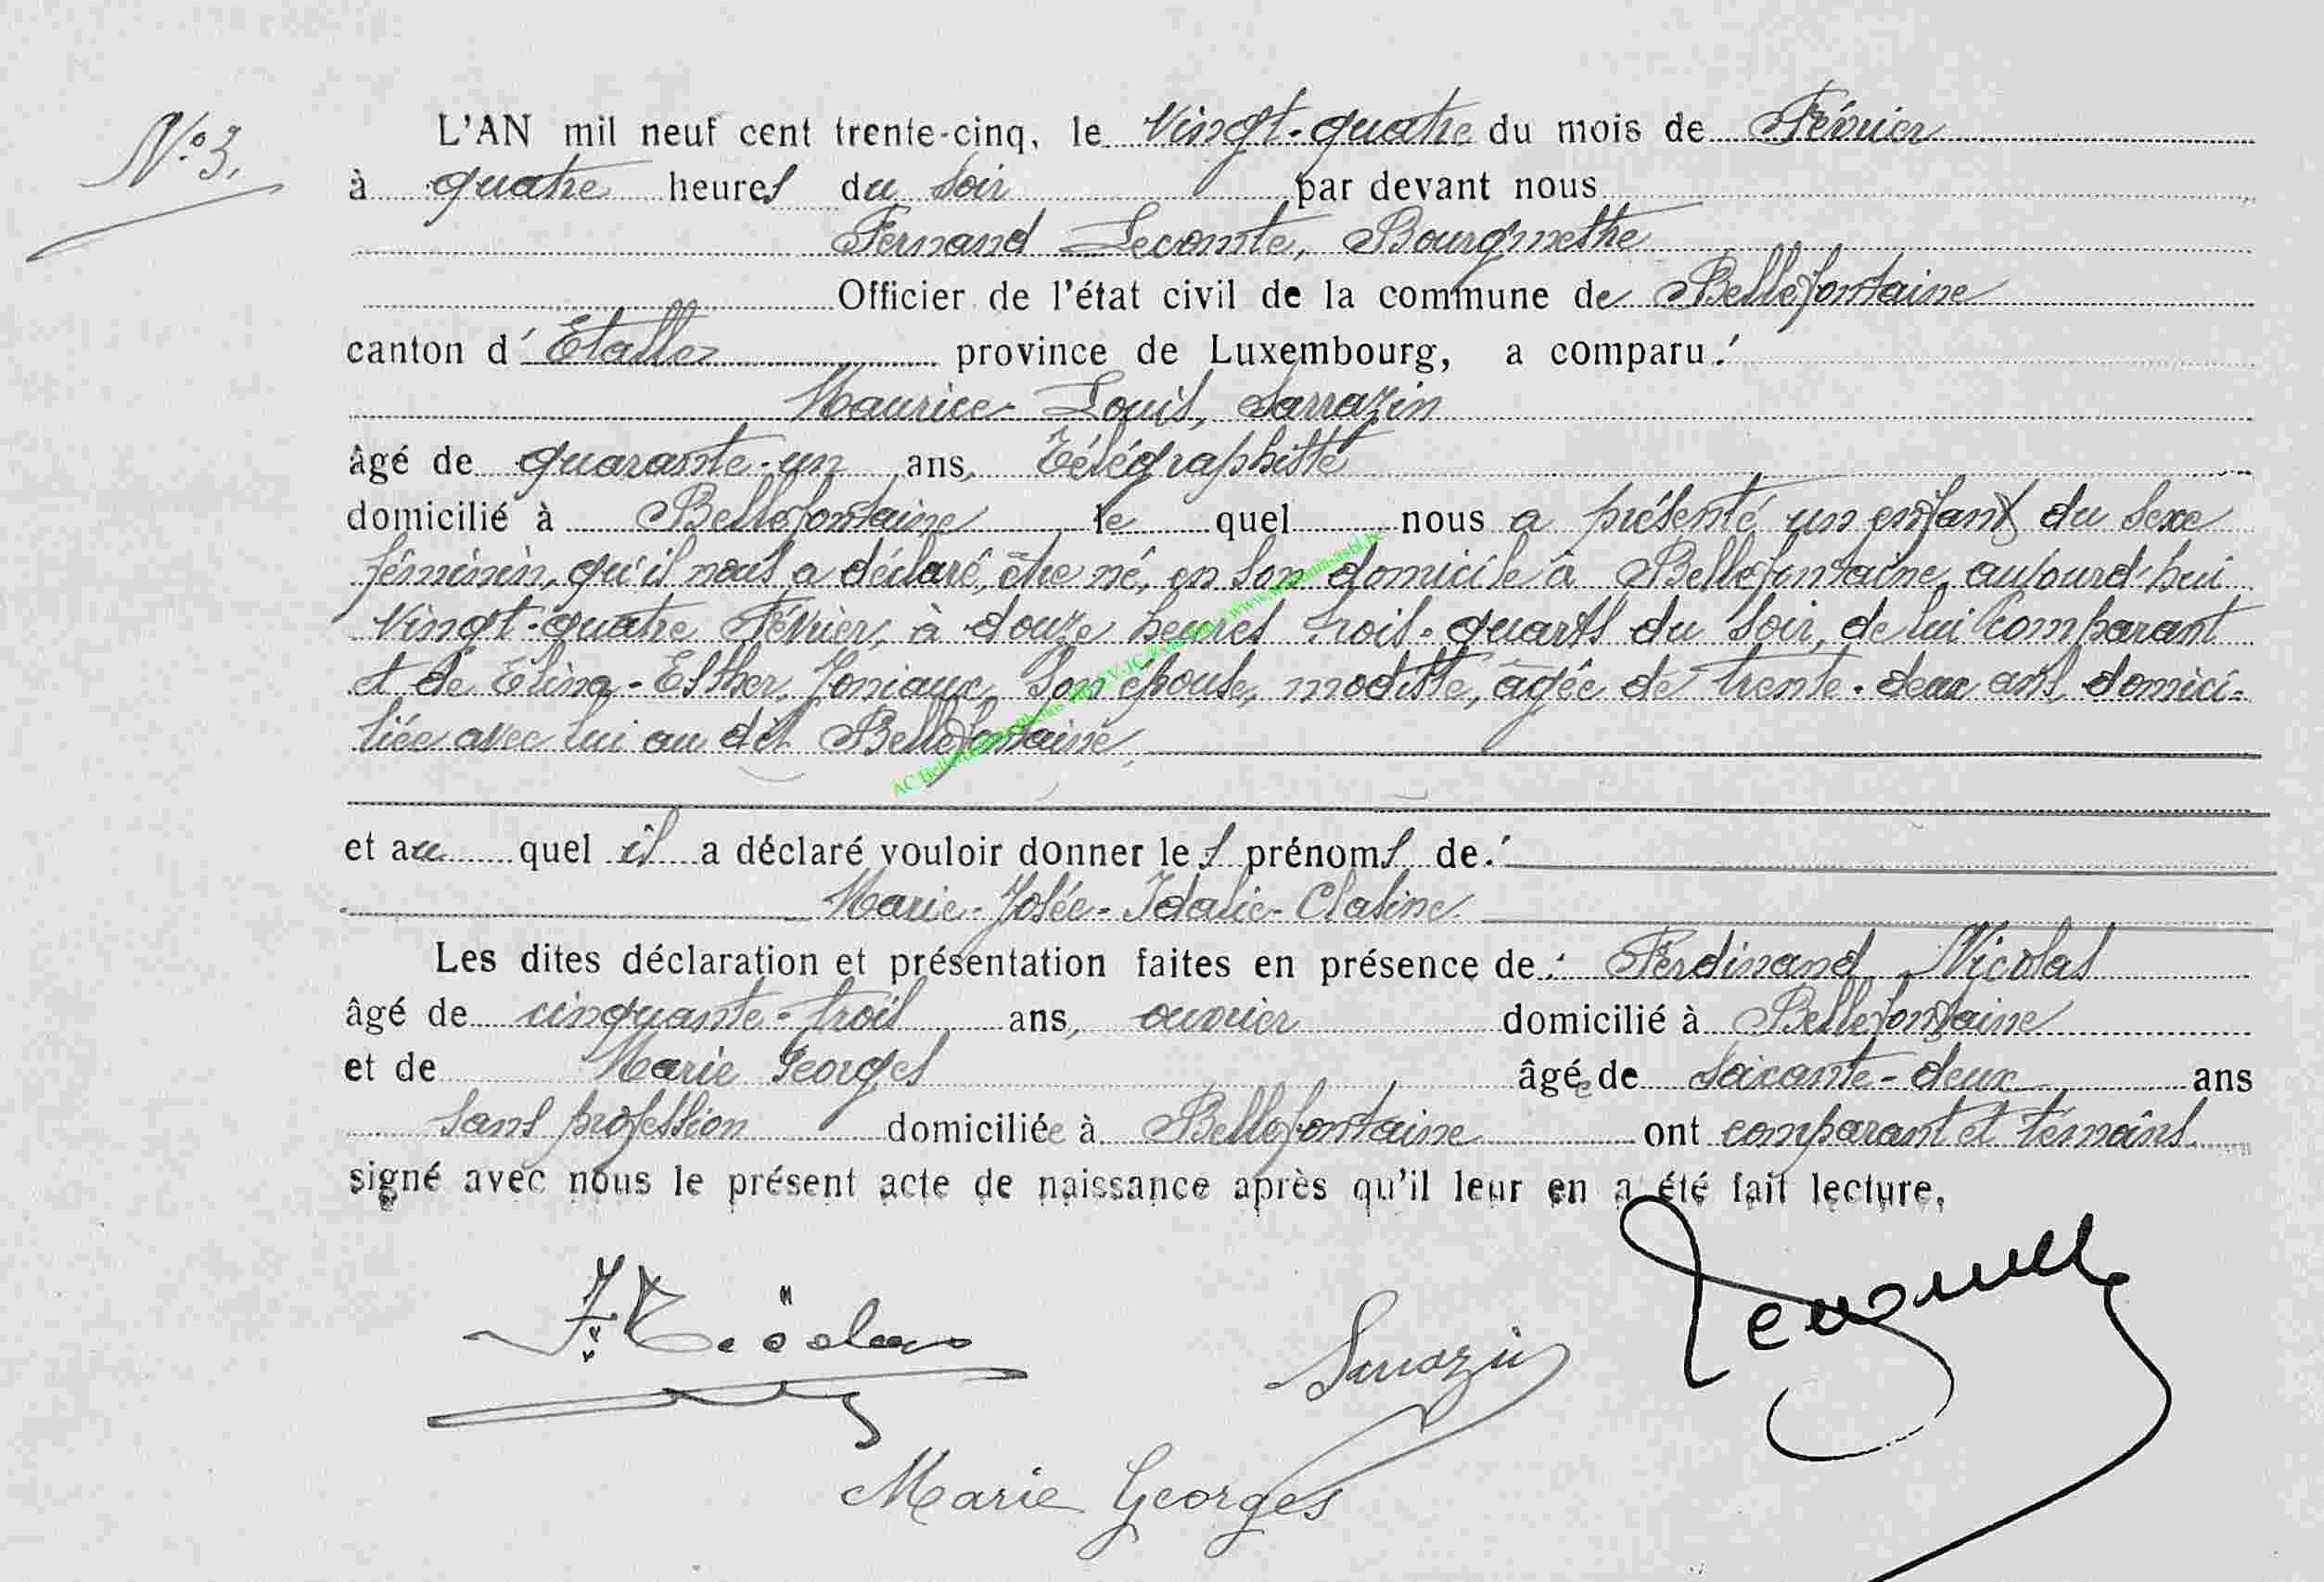 N° 3.
L'AN mil neuf cent trente-cinq, le Vingt-quatre du mois de Février
à quatre heures du soir par devant nous
Fernand Lecomte, Bourgmestre
Officier de l'état civil de la commune de Bellefontaine
canton d'Etalle province de Luxembourg, a comparu :
Maurice-Louis, Sarrazin
âgé de quarante-un ans, Télégraphiste
domicilié à Bellefontaine le quel nous a présenté un enfant du sexe
féminin, qu'il nous a déclaré, être né, en son domicile à Bellefontaine, aujourd'hui
Vingt-quatre Février, à douze heures trois-quarts du soir, de lui Comparant
et de Elina-Esther, Joniaux, son épouse, modiste, âgée de trente-deux ans, domici-
liée avec lui au dit Bellefontaine,
et au quel il a déclaré vouloir donner les prénoms de :
Marie-Josée-Idalie-
Les dites déclaration et présentation faites en présence de : Ferdinand Nicolas
âgé de cinquante-trois ans, ouvrier domicilié à Bellefontaine
et de Marie Georges âgée de soixante-deux ans
sans profession domiciliée à Bellefontaine ont comparant et témoins
signé avec nous le présent acte de naissance après qu'il leur en a été fait lecture,
F. Nicolas
Sarrazin
Marie Georges